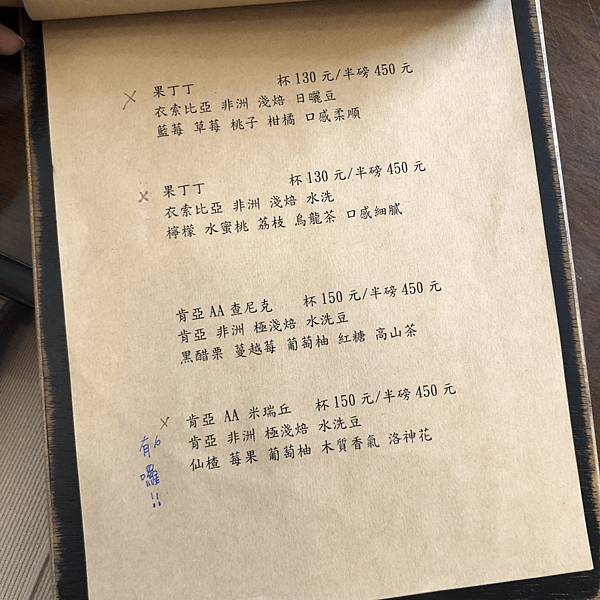 果丁丁 杯 130 元/半磅 450 元
衣索比亞 非洲 淺焙 日曬豆
藍莓 草莓 桃子 柑橘 口感柔順
果丁丁 杯 130 元/半磅 450 元
衣索比亞 非洲 淺焙 水洗
檸檬 水蜜桃 荔枝 烏龍茶 口感細膩
肯亞 AA 查尼克 杯 150 元/半磅 450 元
肯亞 非洲 極淺焙 水洗豆
黑醋栗 蔓越莓 葡萄柚 紅糖 高山茶
肯亞 AA 米瑞丘 杯 150 元/半磅 450 元
肯亞 非洲 極淺焙 水洗豆
仙楂 莓果 葡萄柚 木質香氣 洛神花
有
囉!!